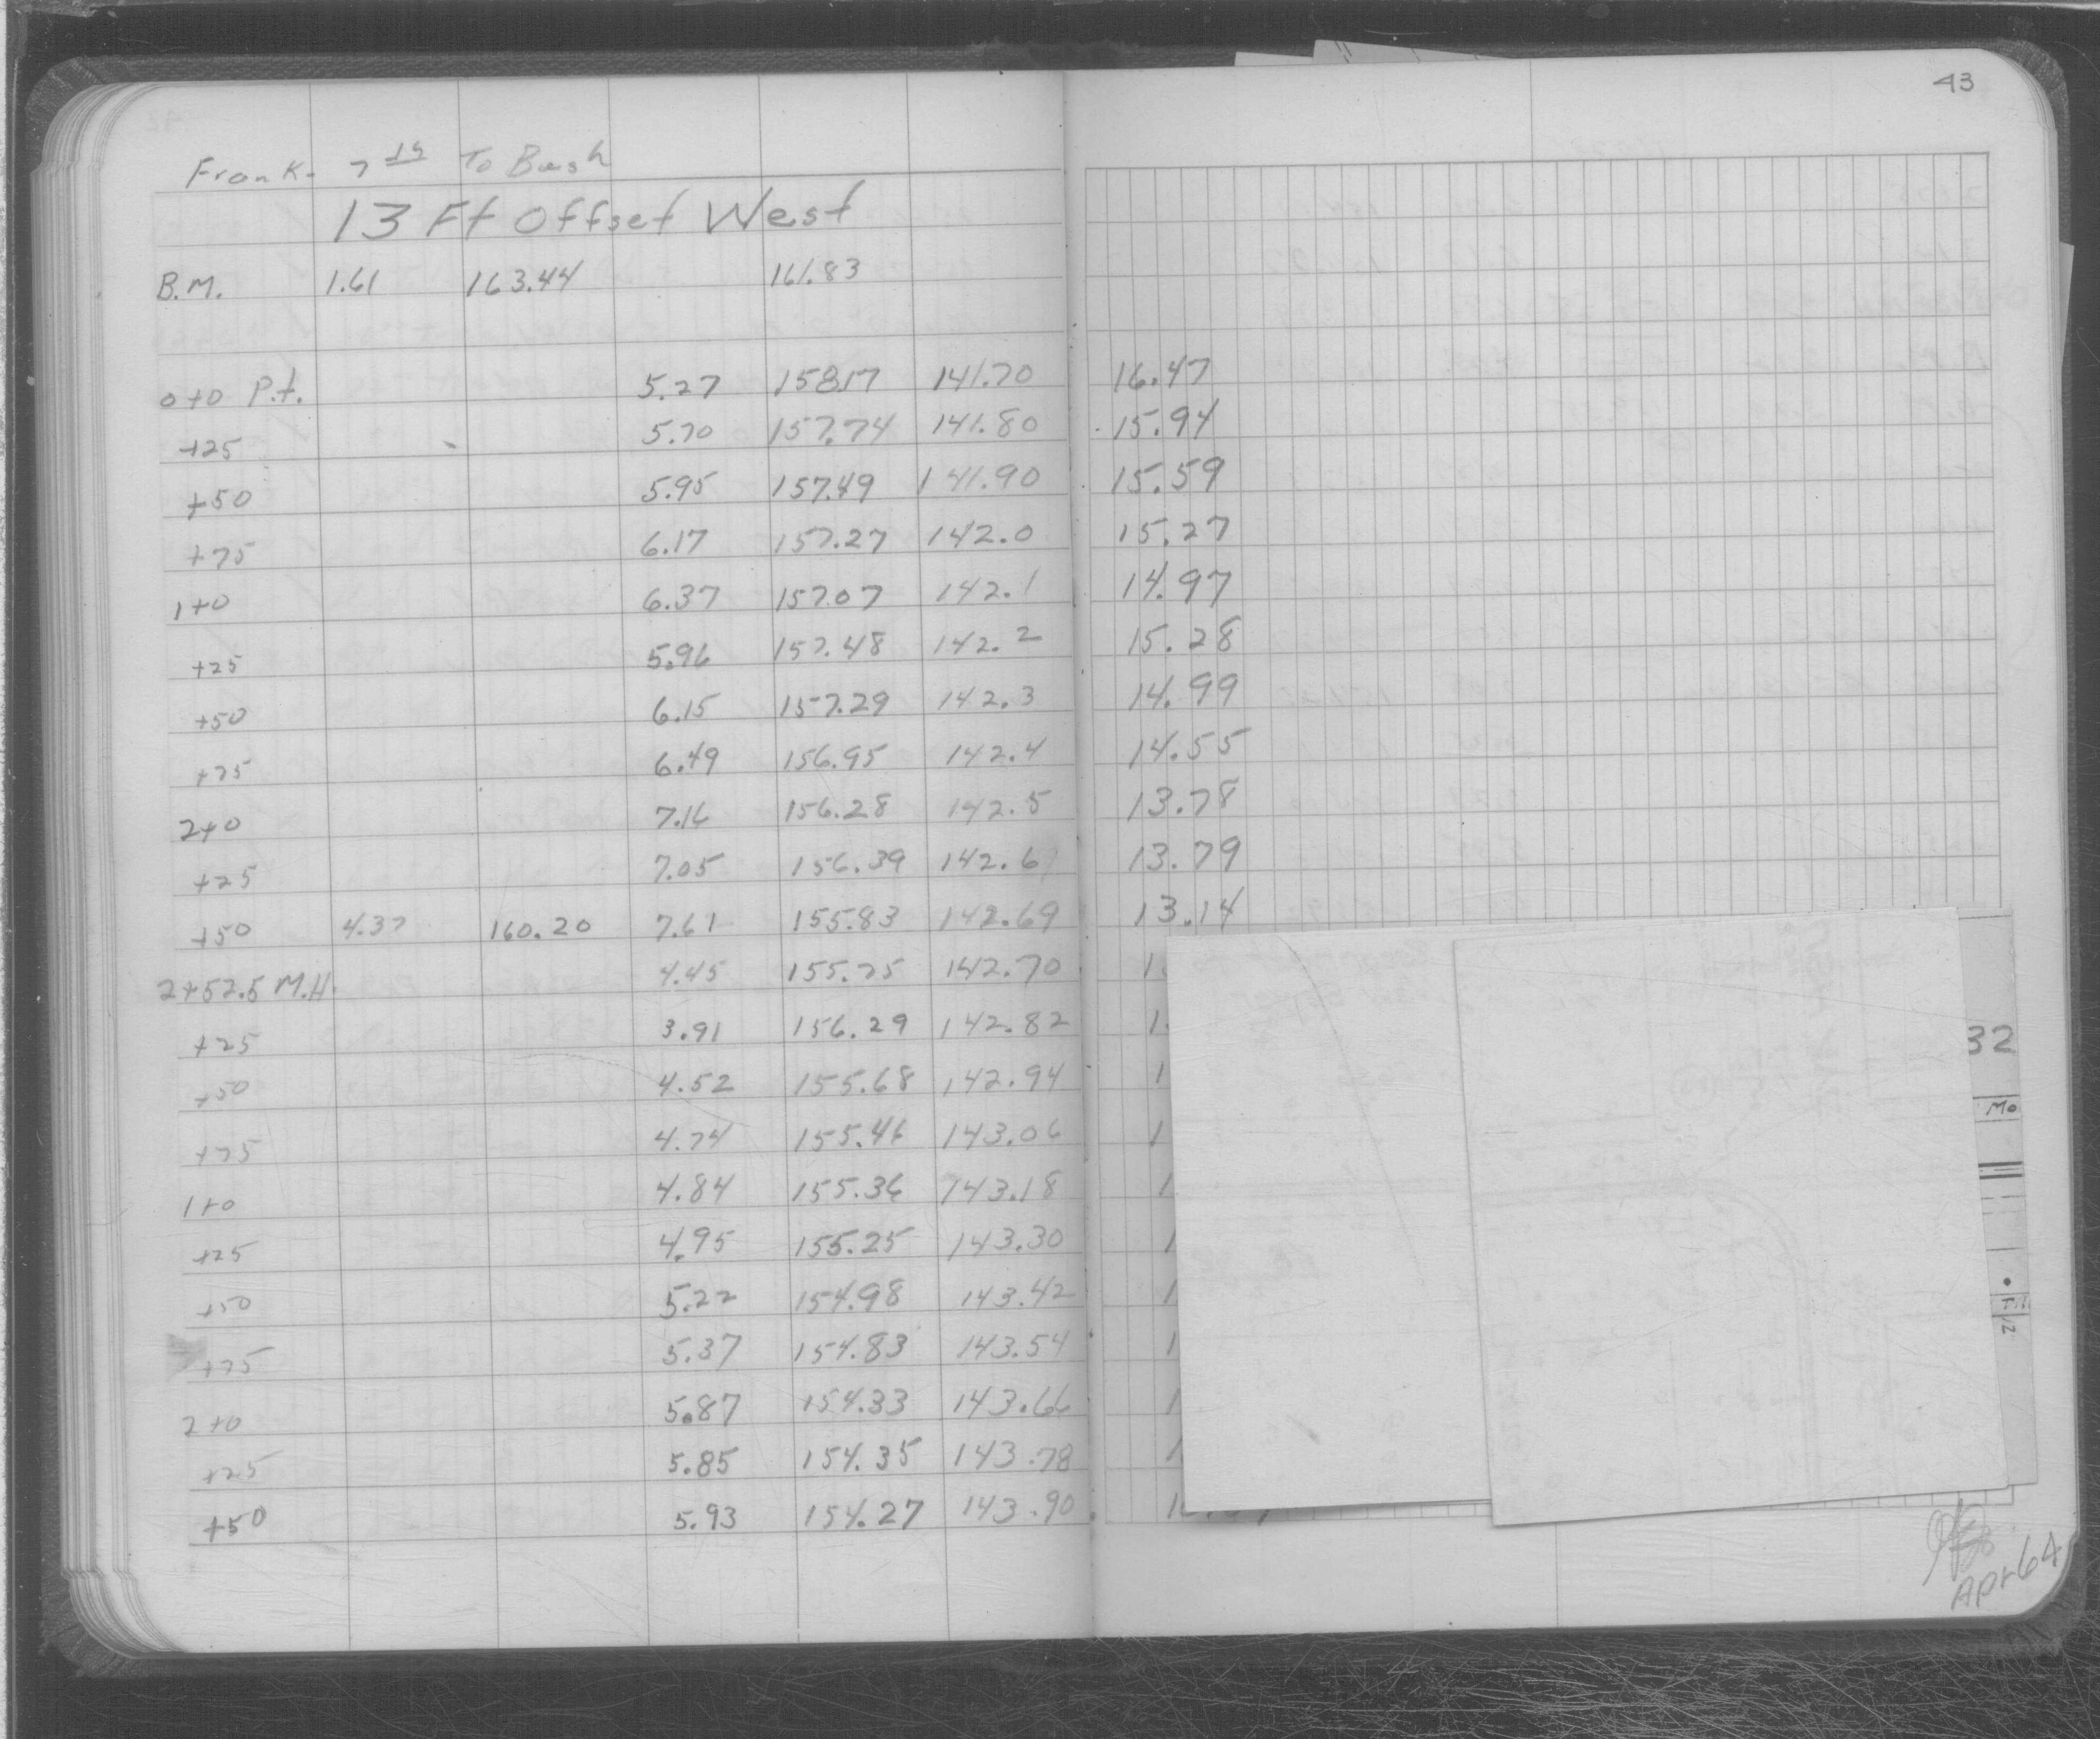 43
Frank- 7th To Bush
13 Ft Offset West
B.M. 1.61 163.44 161.83
0+0 P.t. 5.27 158.17 141.70 16.47
+25 5.70 157.74 141.80 15.94
+50 5.95 157.49 141.90 15.59
+75 6.17 157.27 142.0 15.27
1+0 6.37 157.07 142.1 14.97
+25 5.96 157.48 142.2 15.28
+50 6.15 157.29 142.3 14.99
+75 6.49 156.95 142.4 14.55
2+0 7.16 156.28 142.5 13.78
+25 7.05 156.39 142.6 13.79
+50 4.37 160.20 7.61 155.83 142.69 13.14
2+52.5 M.H. 4.45 155.75 142.70
+25 3.91 156.29 142.82
+50 4.52 155.68 142.94
+75 4.74 155.46 143.06
1+0 4.84 155.36 143.18
+25 4.95 155.25 143.30
+50 5.22 154.98 143.42
+75 5.37 154.83 143.54
2+0 5.87 154.33 143.66
+25 5.85 154.35 143.78
+50 5.93 154.27 143.90
32
Mo
Apr 64